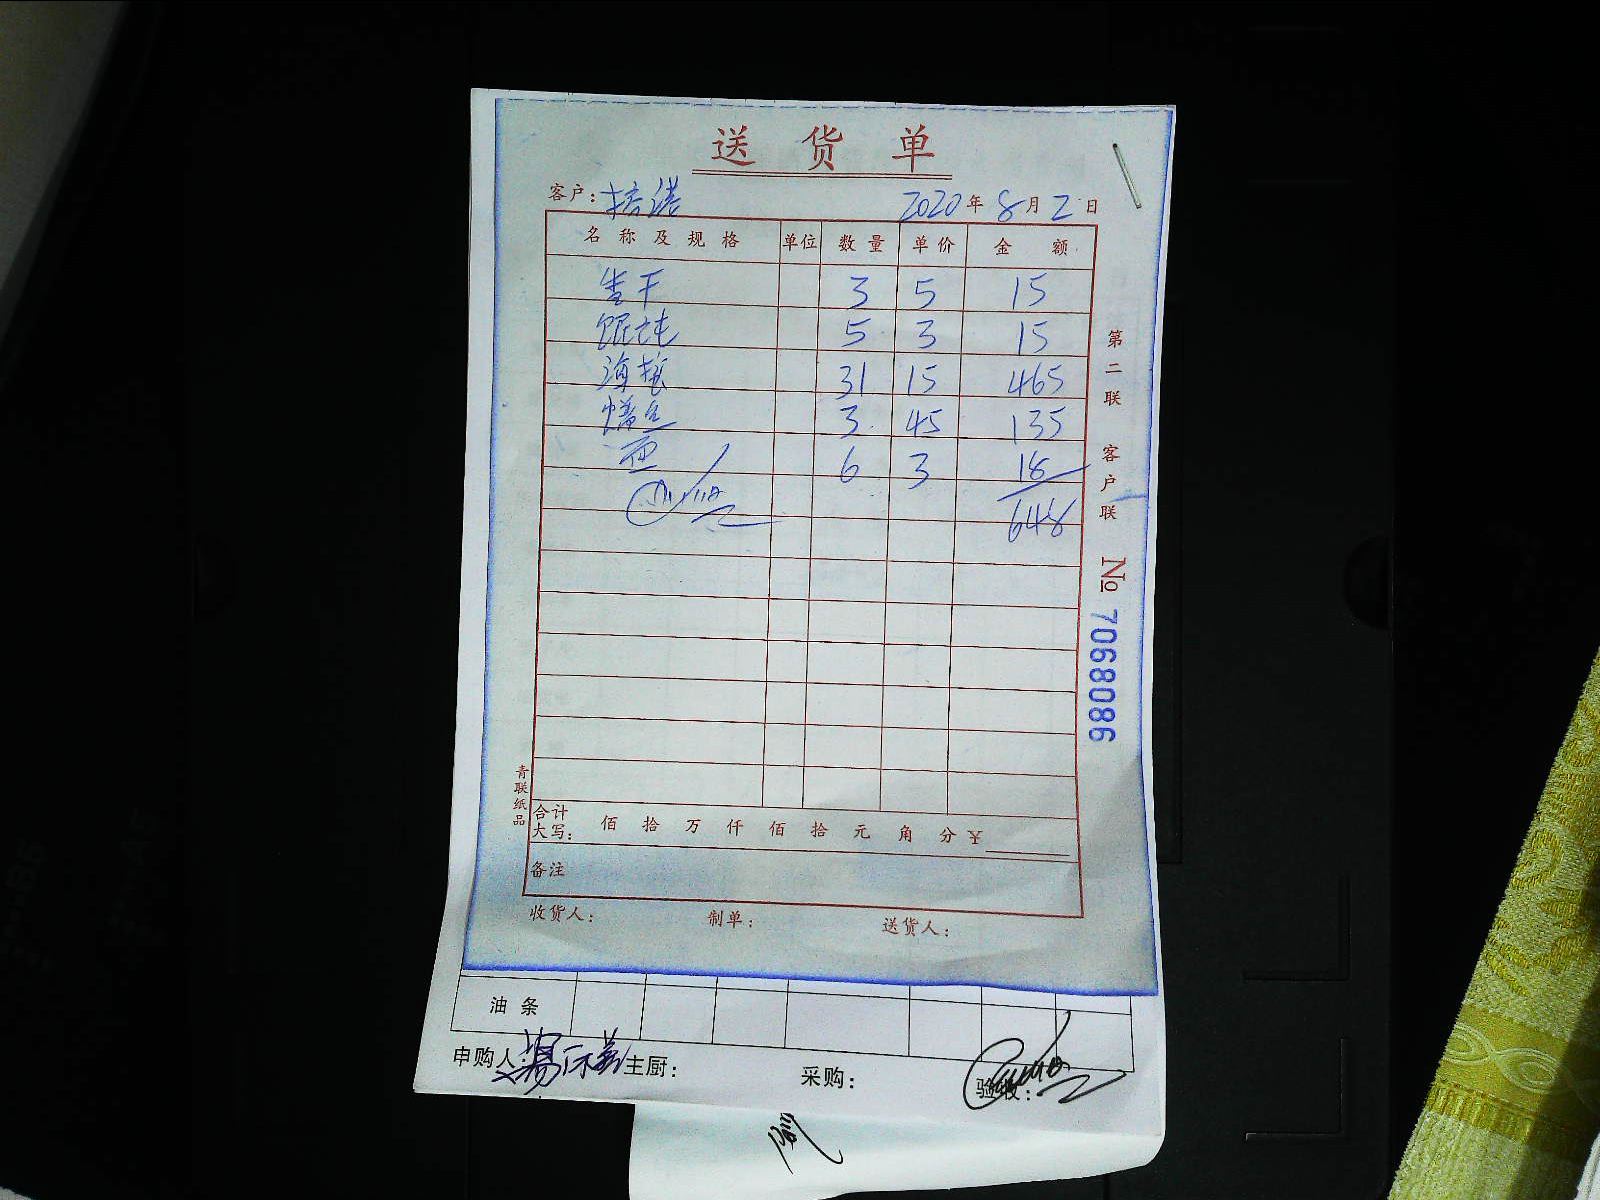 送货单
客户: 2020年8月2日
名称及规格 单位 数量 单价 金额
3 5 15
馄饨 5 3 15
海 31 15 465
3 45 135
6 3 18
648
第二联 客户联
No 7068086
青联纸品
合计大写: 佰 拾 万 仟 佰 拾 元 角 分 ¥
备注
收货人: 制单: 送货人:
油条
申购人: 主厨: 采购: 验收: